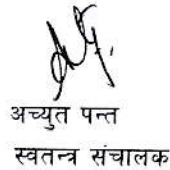 अच्युत पन्त
स्वतन्त्र संचालक